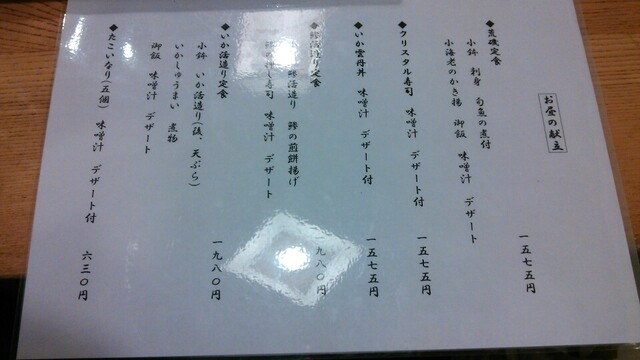 お昼の献立
◆荒磯定食
小鉢 刺身 旬魚の煮付
小海老のかき揚 御飯 味噌汁 デザート
一五七五円
◆クリスタル寿司 味噌汁 デザート付
一五七五円
◆いか雲丹丼 味噌汁 デザート付
一五七五円
◆鯵活造り定食
鯵活造り 鯵の煎餅揚げ
鯵押し寿司 味噌汁 デザート
一九八〇円
◆いか活造り定食
小鉢 いか活造り(後、天ぷら)
いかしゅうまい 煮物
御飯 味噌汁 デザート
一九八〇円
◆たこいなり(五個) 味噌汁 デザート付
六三〇円